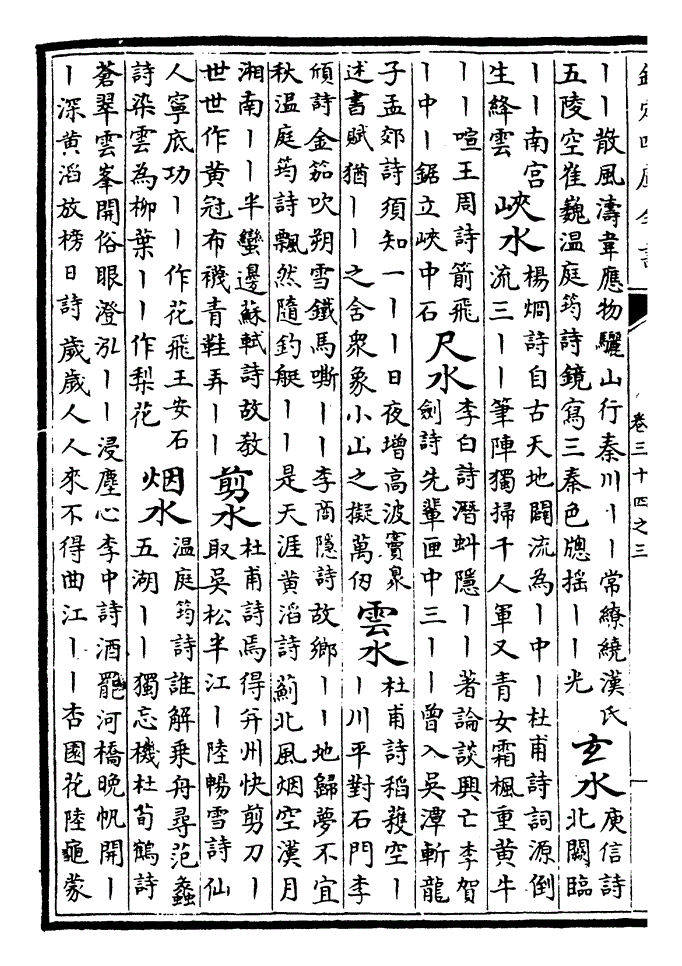 欽定四庫全書 卷三十四之三
丨丨散風濤韋應物驪山行秦川丨丨常繚繞漢氏
五陵空崔巍溫庭筠詩鏡寫三秦色牕摇丨丨光
玄水
庾信詩
北闕臨
丨丨南宫
生絳雲
峽水
楊烱詩自古天地闢流為丨中丨杜甫詩詞源倒
流三丨丨筆陣獨掃千人軍又青女霜楓重黄牛
丨丨喧王周詩箭飛
丨中丨鋸立峽中石
尺水
李白詩潛虯隱丨丨著論談興亡李賀
劍詩先輩匣中三丨丨曾入吴潭斬龍
子孟郊詩須知一丨丨日夜增高波竇臮
述書賦猶丨丨之含衆象小山之擬萬仞
雲水
杜甫詩稻穫空丨
丨川平對石門李
頎詩金笳吹朔雪鐵馬嘶丨丨李商隱詩故鄉丨丨地歸夢不宜
秋温庭筠詩飄然隨釣艇丨丨是天涯黄滔詩薊北風烟空漢月
湘南丨丨半蠻邊蘇軾詩故教
世世作黄冠布襪青鞋弄丨丨
剪水
杜甫詩焉得并州快剪刀丨
取吴松半江丨陸暢雪詩仙
人寧底功丨丨作花飛王安石
詩染雲為柳葉丨丨作梨花
烟水
温庭筠詩誰解乘舟尋范蠡
五湖丨丨獨忘機杜荀鶴詩
蒼翠雲峯開俗眼澄泓丨丨浸塵心李中詩酒罷河橋晚帆開丨
丨深黄滔放榜日詩歲歲人人來不得曲江丨丨杏園花陸龜蒙